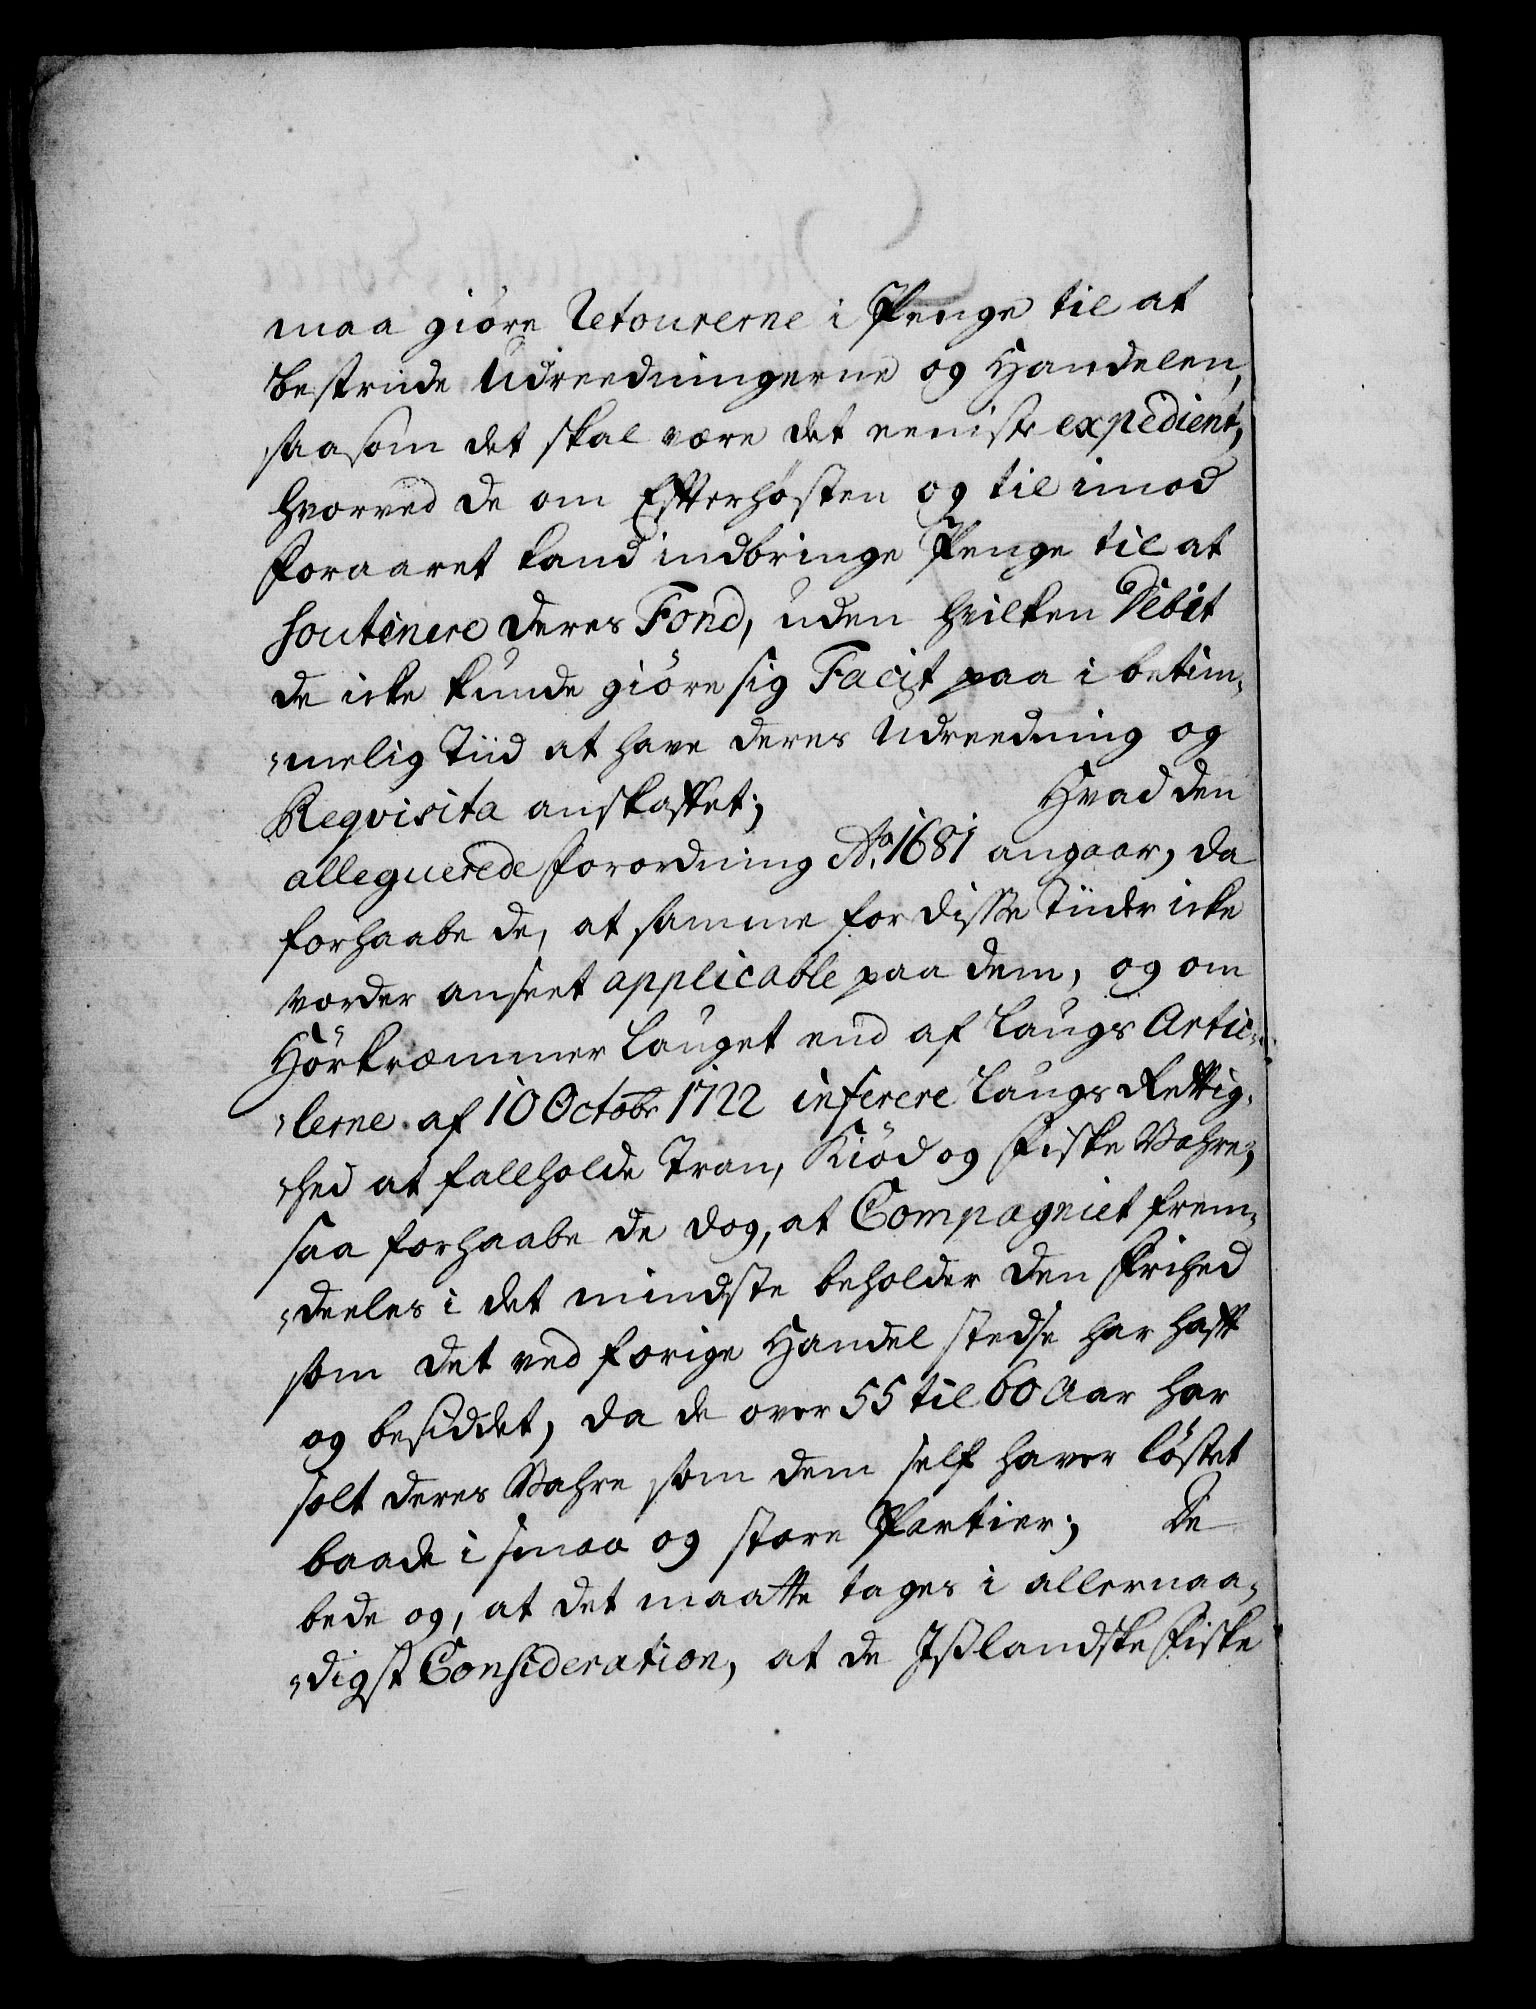 maa giöre Retourerne i Penge til at
bestride Udreedningerne og Handelen,
saasom det skal være det eeniste expedient,
hvorved de om Efterhösten og til imod
Foraaret kand indbringe Penge til at
soutinere deres Fond, uden hvilken Debit
de icke kunde giöre sig Facit paa i betim-
melig Tiid at have deres Udreedning og
Reqvisita anskaffet; Hvad den
alleguerede Forordning Ao. 1681 angaar, da
forhaabe de, at samme for disse Tiider icke
vorder anseet applicable paa dem, og om
Hörkræmmer Lauget end af Laugs Artic-
lerne af 10 Octobr 1722 inferere Laugs Rettig-
hed at fallholde Tran, Kiöd og Fiske Wahre,
saa forhaabe de dog, at Compagniet frem-
deeles i det mindste beholder den Frihed
som det ved forige Handel stedse har hafft
og besiddet, da de over 55 til 60 Aar har
solt deres Wahre som dem self haver löstet
baade i smaa og store Partier; De
bede og, at det maatte tages i allernaa-
digst Consideration, at de Jßlandske Fiske